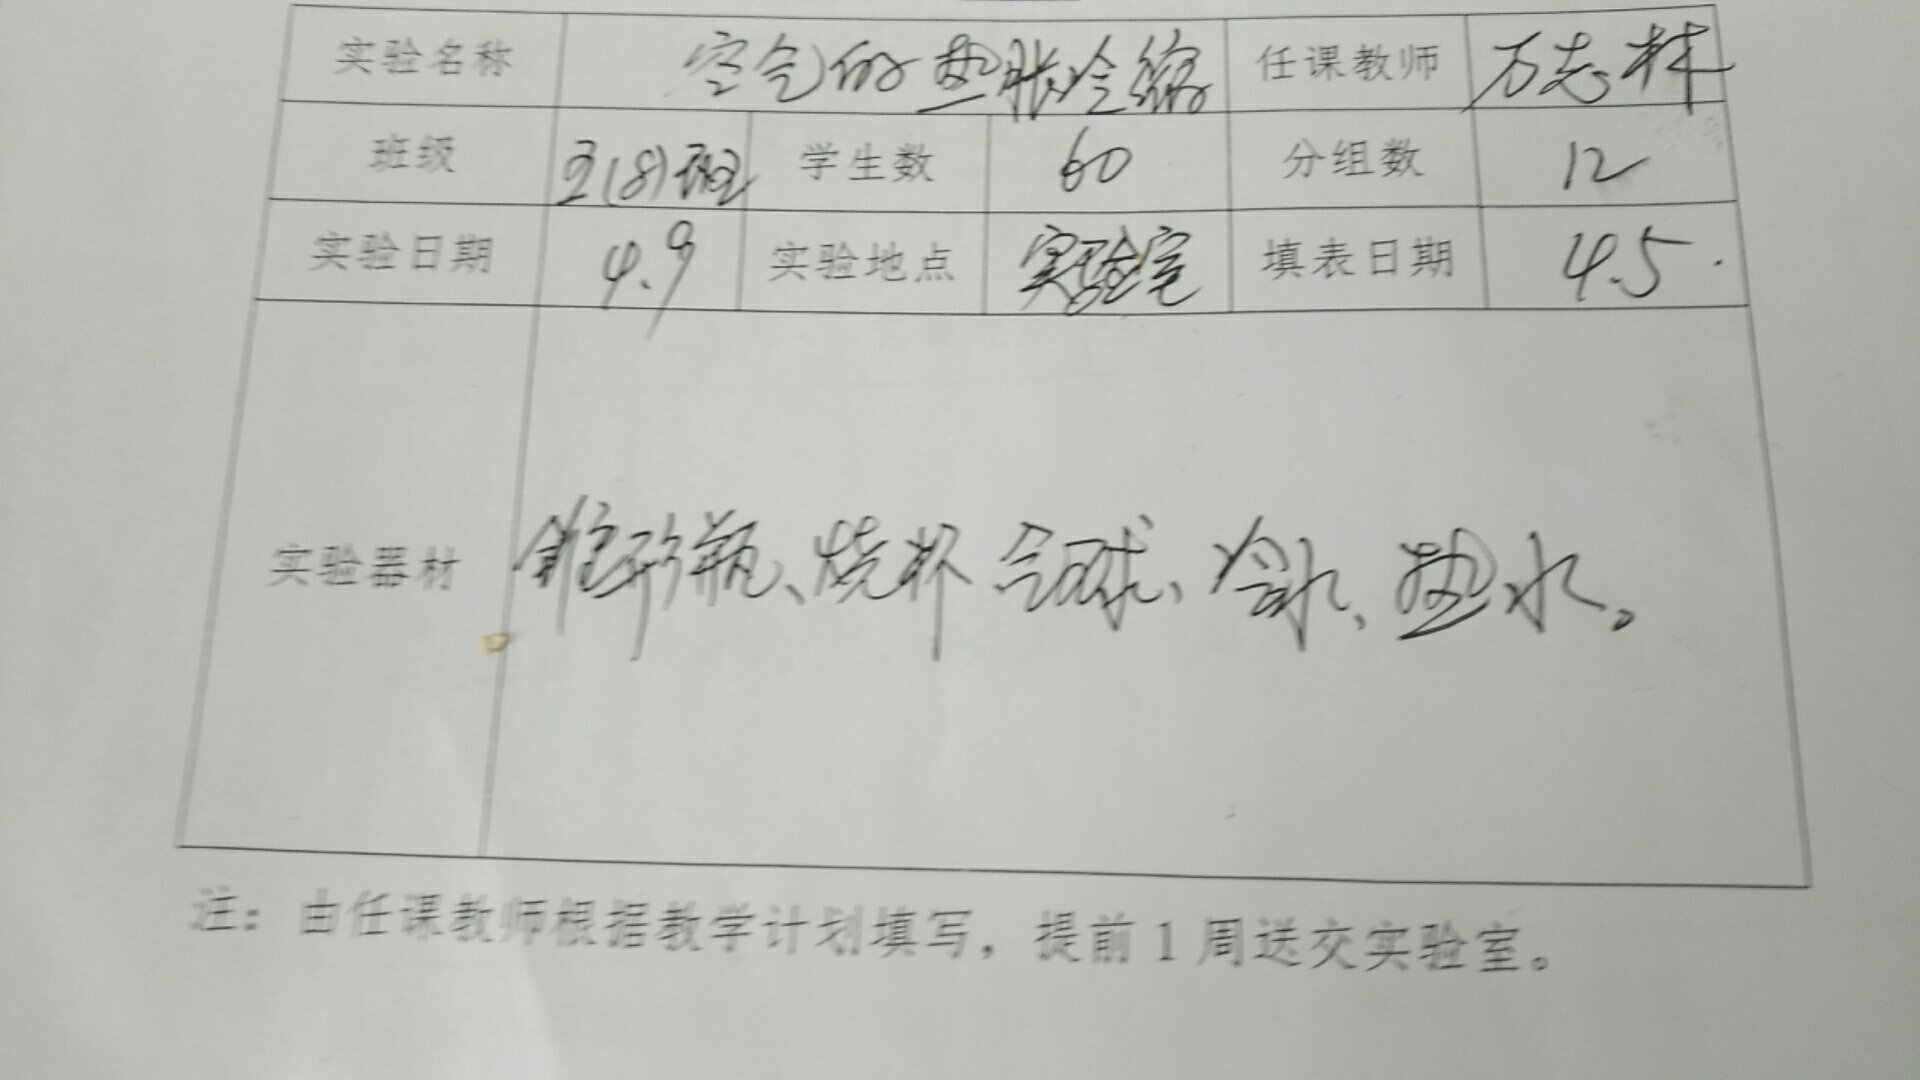 实验名称 空气的热胀冷缩 任课教师 万志林
班级 五(8)班 学生数 60 分组数 12
实验日期 4.9 实验地点 实验室 填表日期 4.5.
实验器材 锥形瓶、烧杯 气球、冷水、热水。
注：由任课教师根据教学计划填写，提前1周送交实验室。